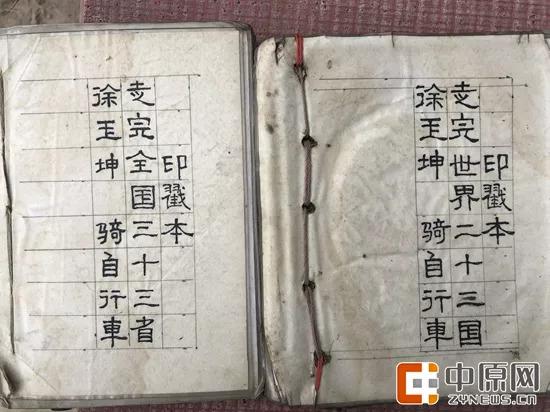 徐玉坤 骑自行車
走完全国三十三省
印戳本
徐玉坤 骑自行車
走完世界二十三国
印戳本
中原网
ZYNEWS.CN